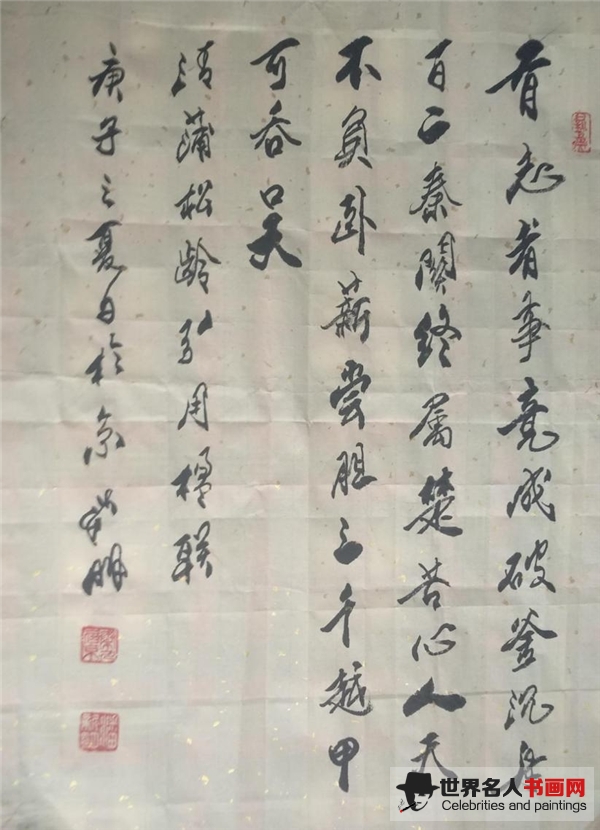 有志者事竟成破釜沉舟
百二秦関终属楚苦心人天
不負卧薪尝胆三千越甲
可吞吴
清蒲松龄引用楹联
庚子之夏日於京
世界名人书画网
Celebrities and paintings